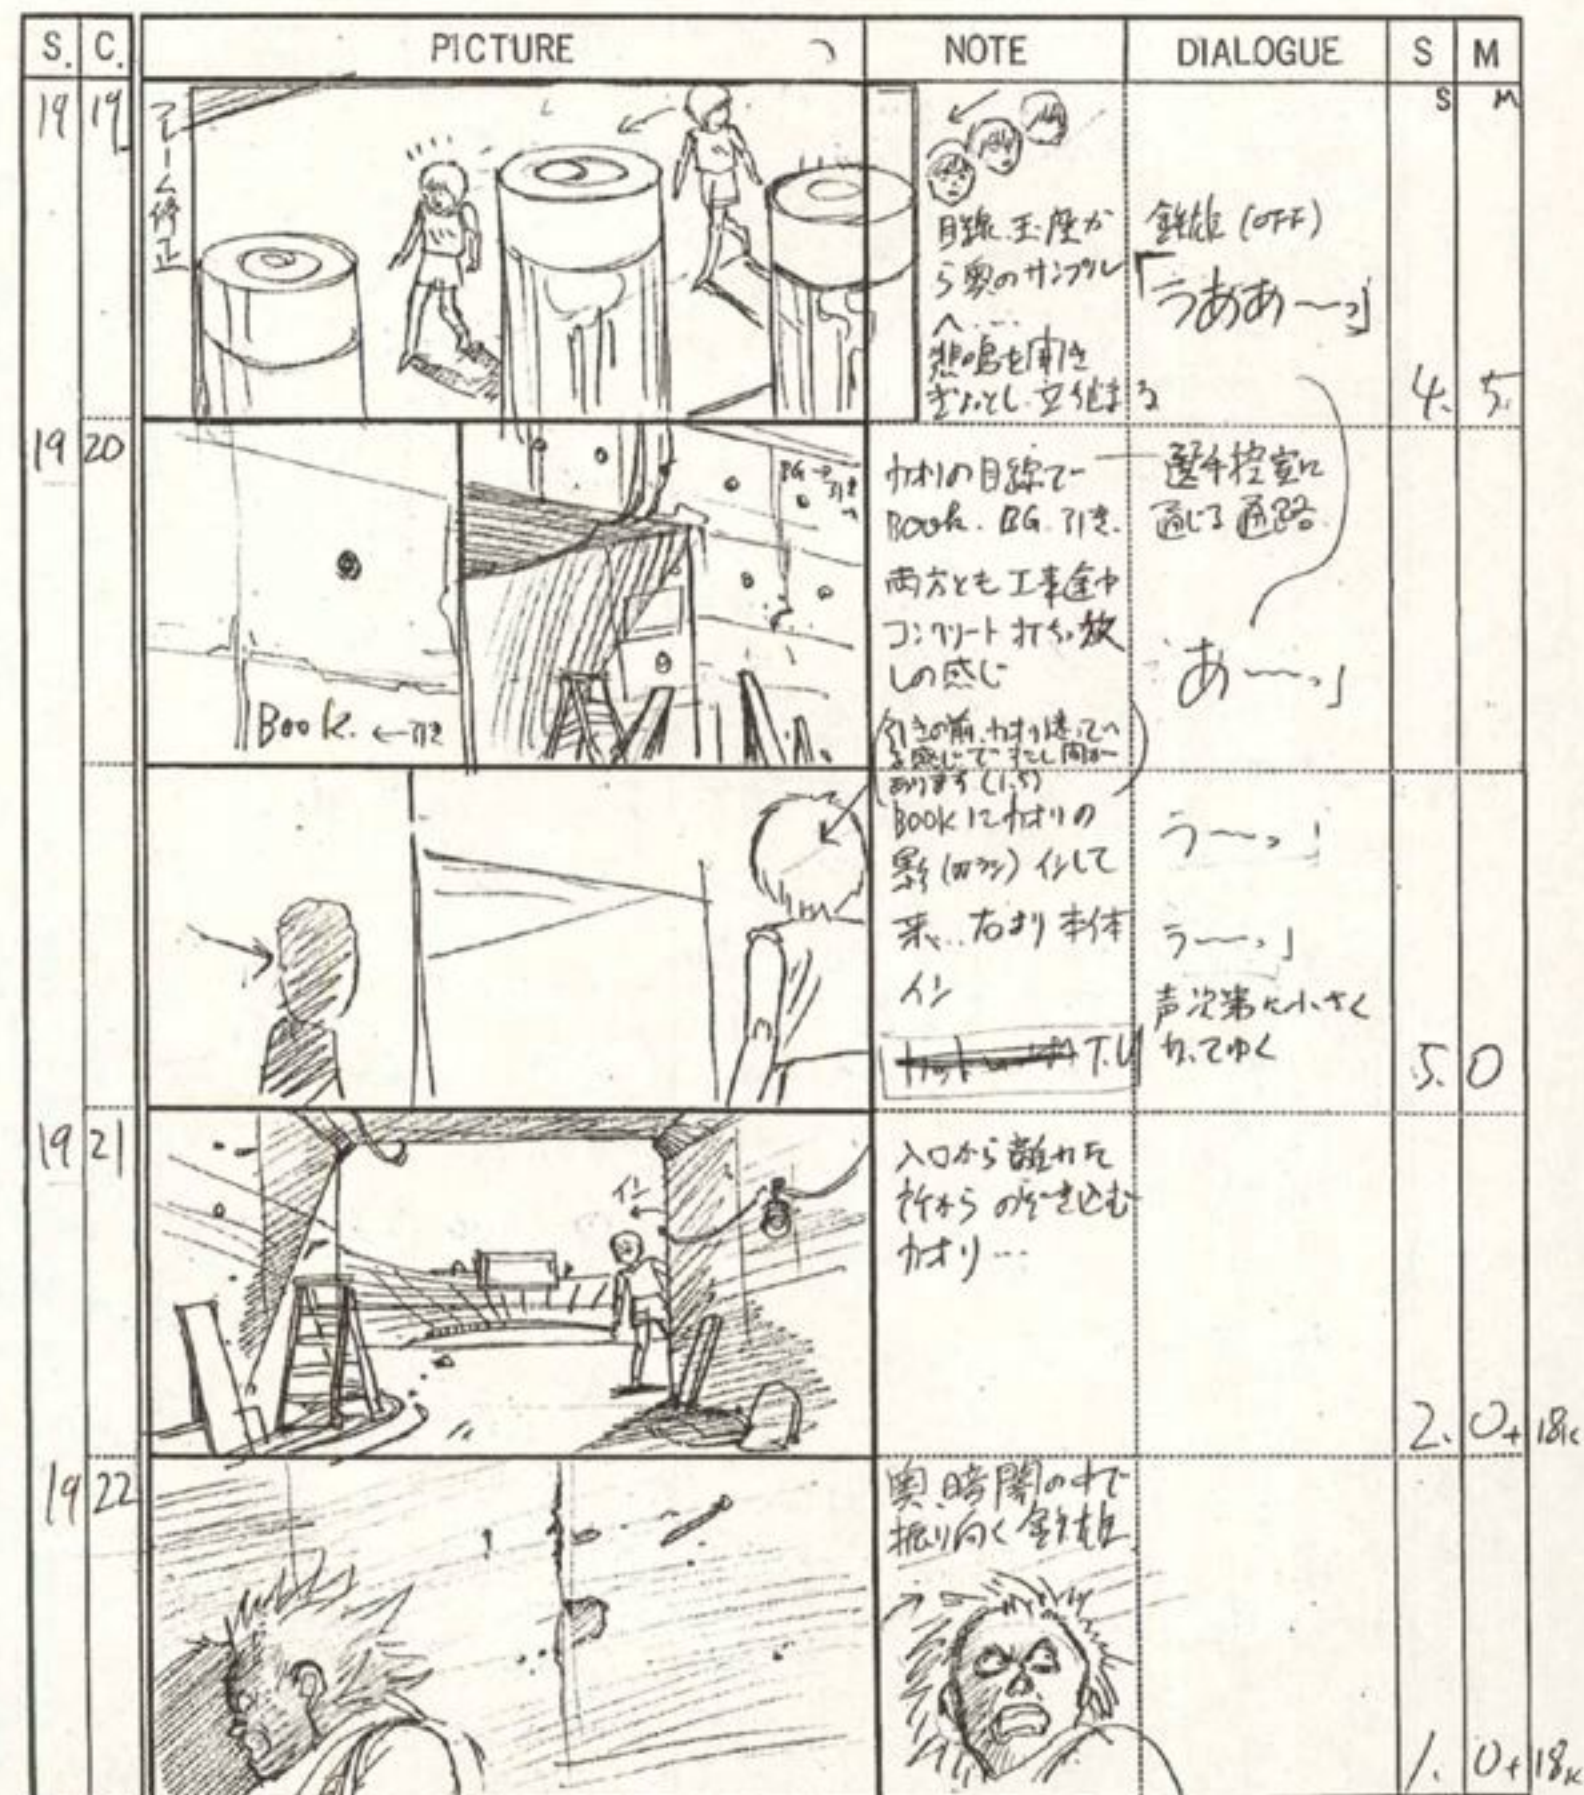 S. C. PICTURE NOTE DIALOGUE S M
19 19
フレーム修正
S M
目線、玉座か
ら奥のサンプル
へ……
悲鳴を聞き
ぎょっとし立ち止まる
鉄雄 (OFF)
「うああ〜っ」
4. 5.
19 20
BG→引き
Book. ←引き
カオリの目線で
BOOK. BG. 引き.
両方とも工事途中
コンクリート打ちっ放
しの感じ
選手控室に
通じる通路
あ〜っ」
あります (1.5)
BOOKにカオリの
影 イン して
来、右より本体
イン
T.U
う〜っ」
う〜っ」
声次第に小さく
なってゆく
5. 0
19 21
イン
入口から離れた
所からのぞき込む
カオリ…
2. 0+18K
19 22
奥、暗闇の中で
振り向く鉄雄
1. 0+18K